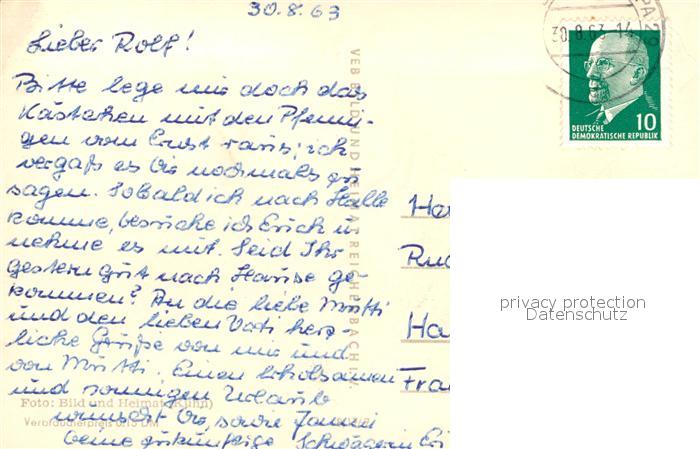 30.8.63
Lieber Rolf!
Bitte lege mir doch das
Kästchen mit den Pfenni-
gen vom Ernst raus; ich
vergaß es Dir nochmals zu
sagen. Sobald ich nach Halle
komme, besuche ich Erich u
nehme es mit. Seid Ihr
gestern gut nach Hause ge-
kommen? An die liebe Mutti
und den lieben Vati herz-
liche Grüße von mir und
von Mutti. Einen erholsamen
und sonnigen Urlaub
wünscht Dir, sowie
Deine zukünftige Schwägerin
Foto: Bild und Heimat (Kühn)
Verbraucherpreis 0.15 DM
VEB BILD UND HEIMAT REICHENBACH I. V.
30.8.63.14
10
DEUTSCHE
DEMOKRATISCHE REPUBLIK
Her
Rud
Ha
Fra
privacy protection
Datenschutz